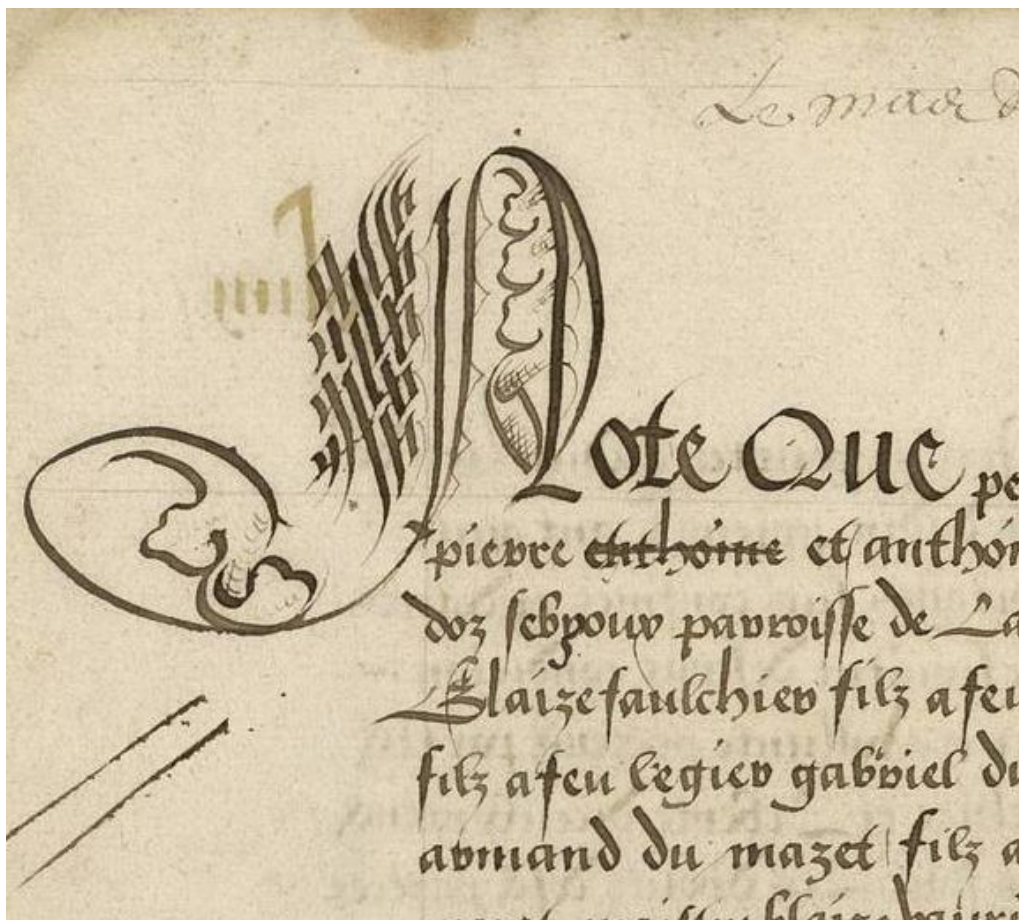 Le
Note Que pe
pierre anthoine et anthoi
doz parroisse de La
Blaize faulchier filz a feu
filz a feu legier gabriel du
armand du mazet filz a